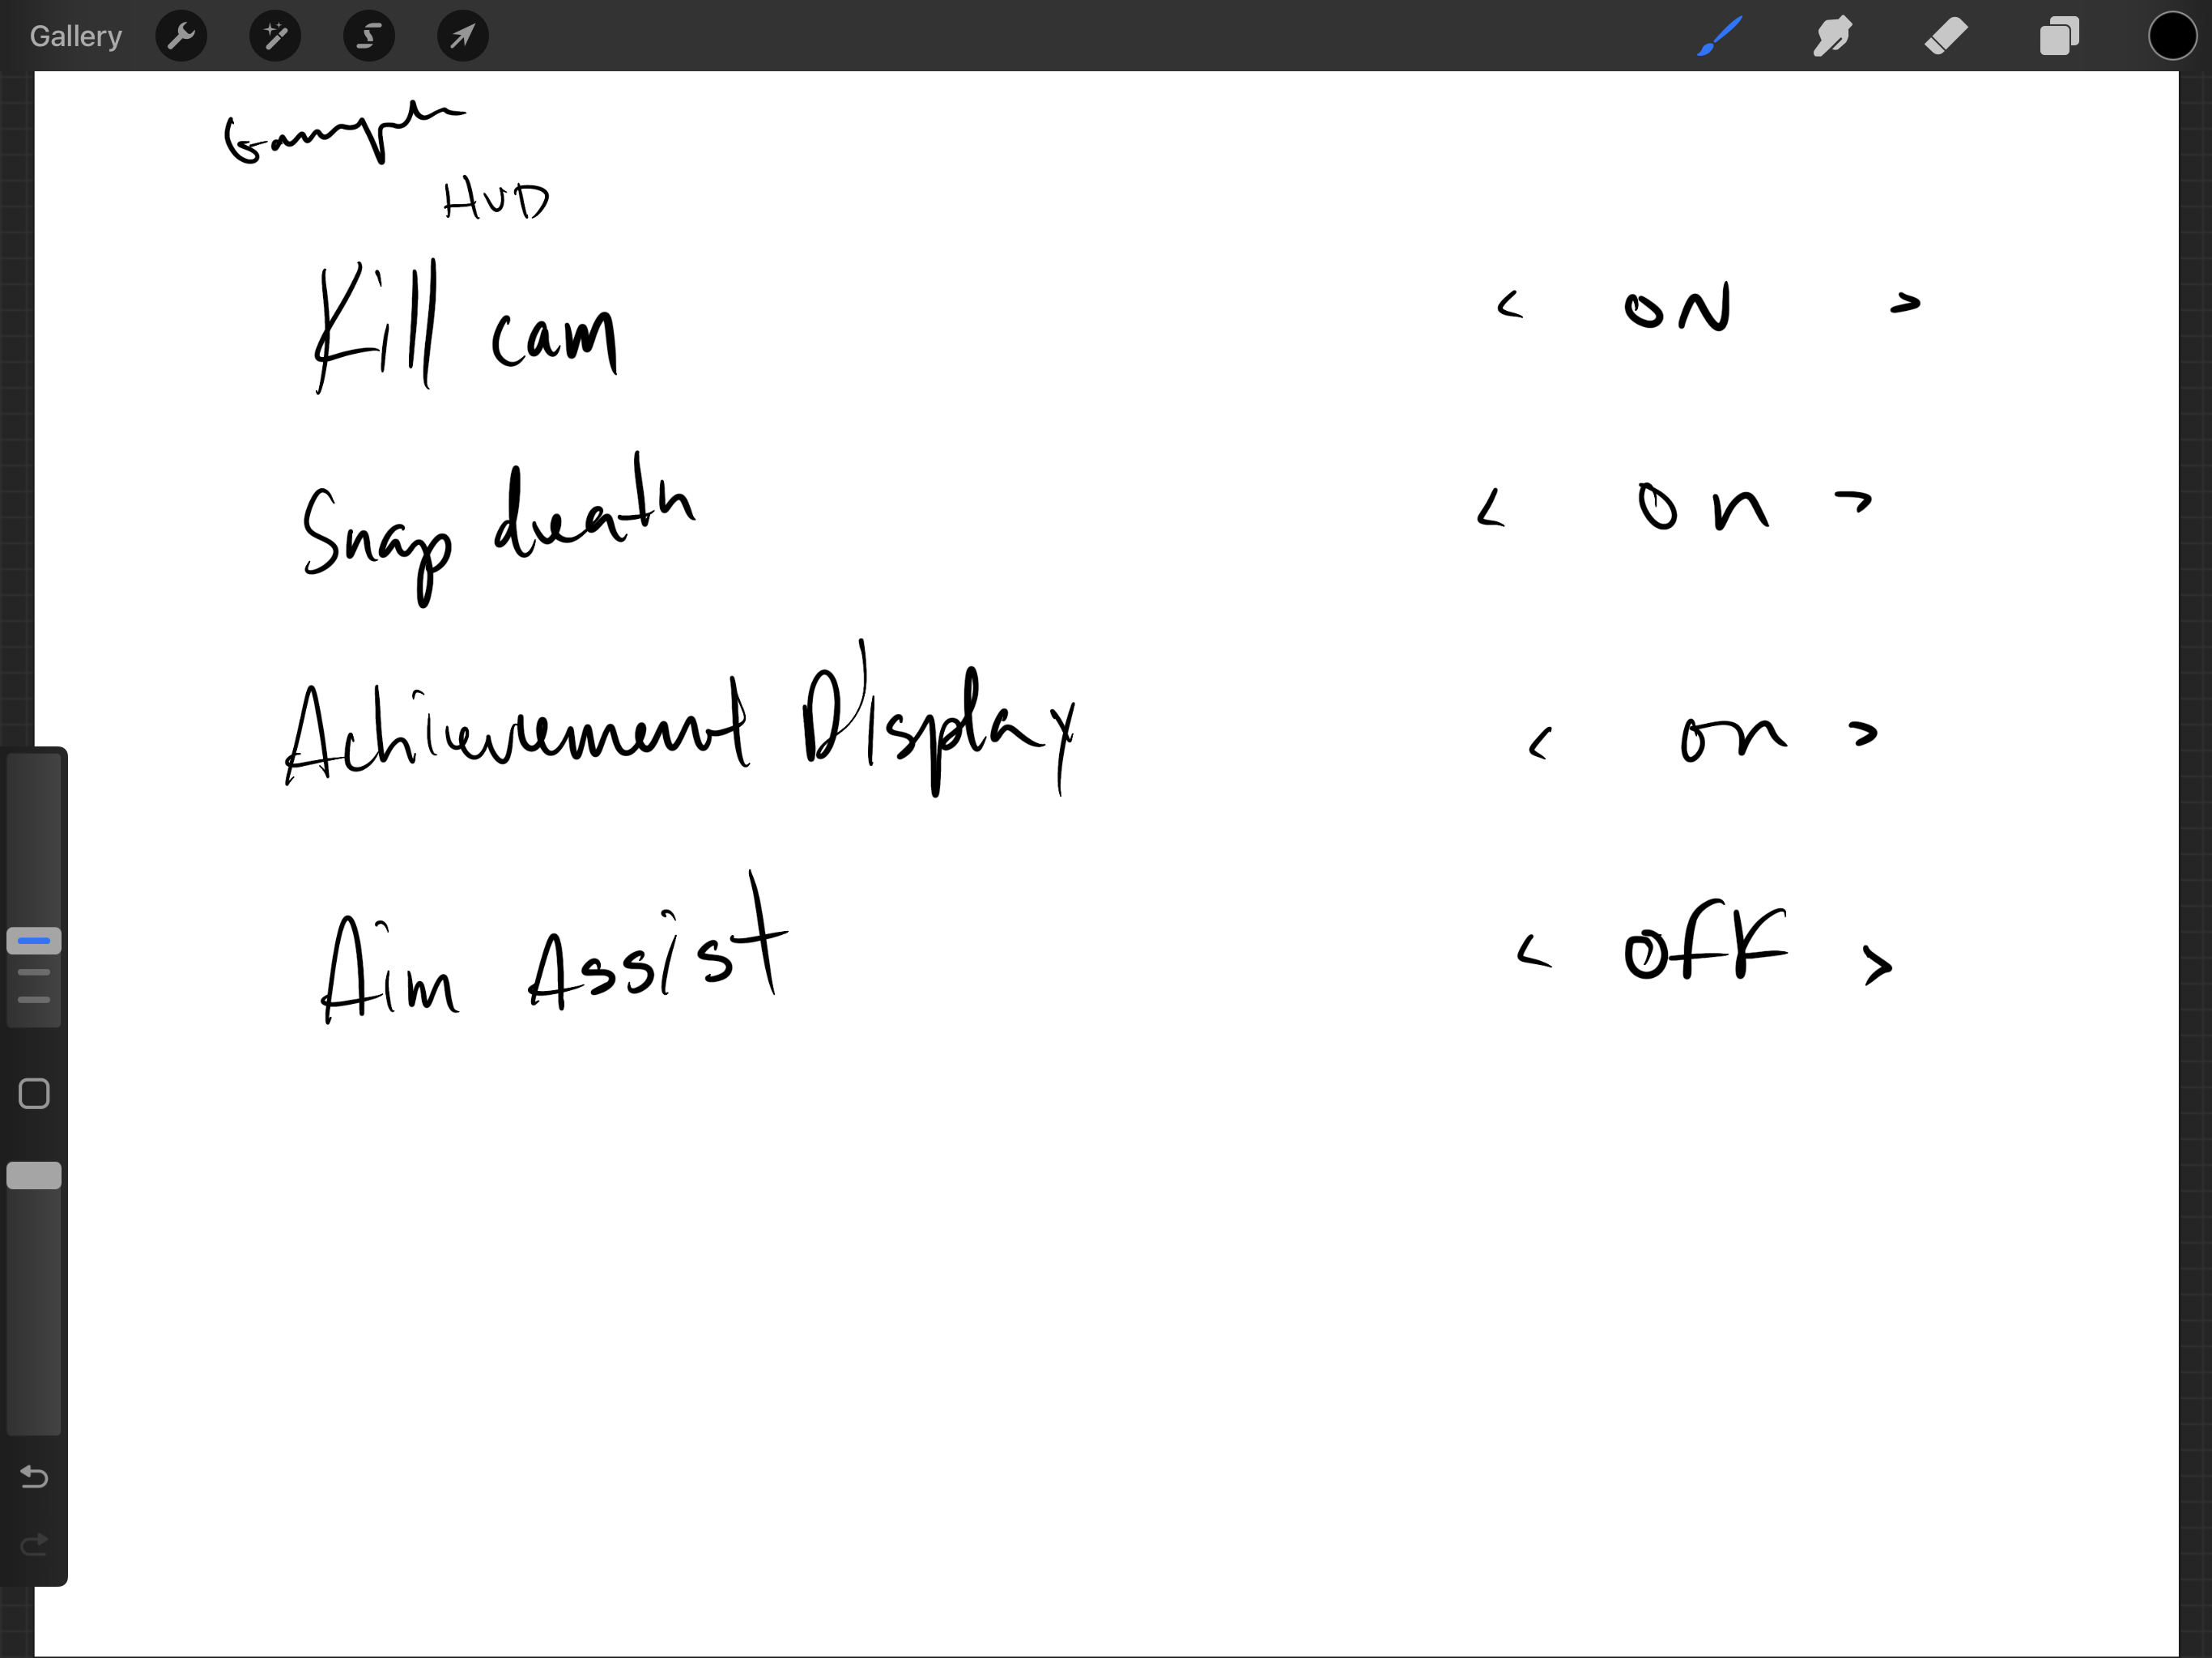 Gallery
HUD
Kill cam < ON >
Snap death < On >
Achievement Display < on >
Aim Assist < Off >